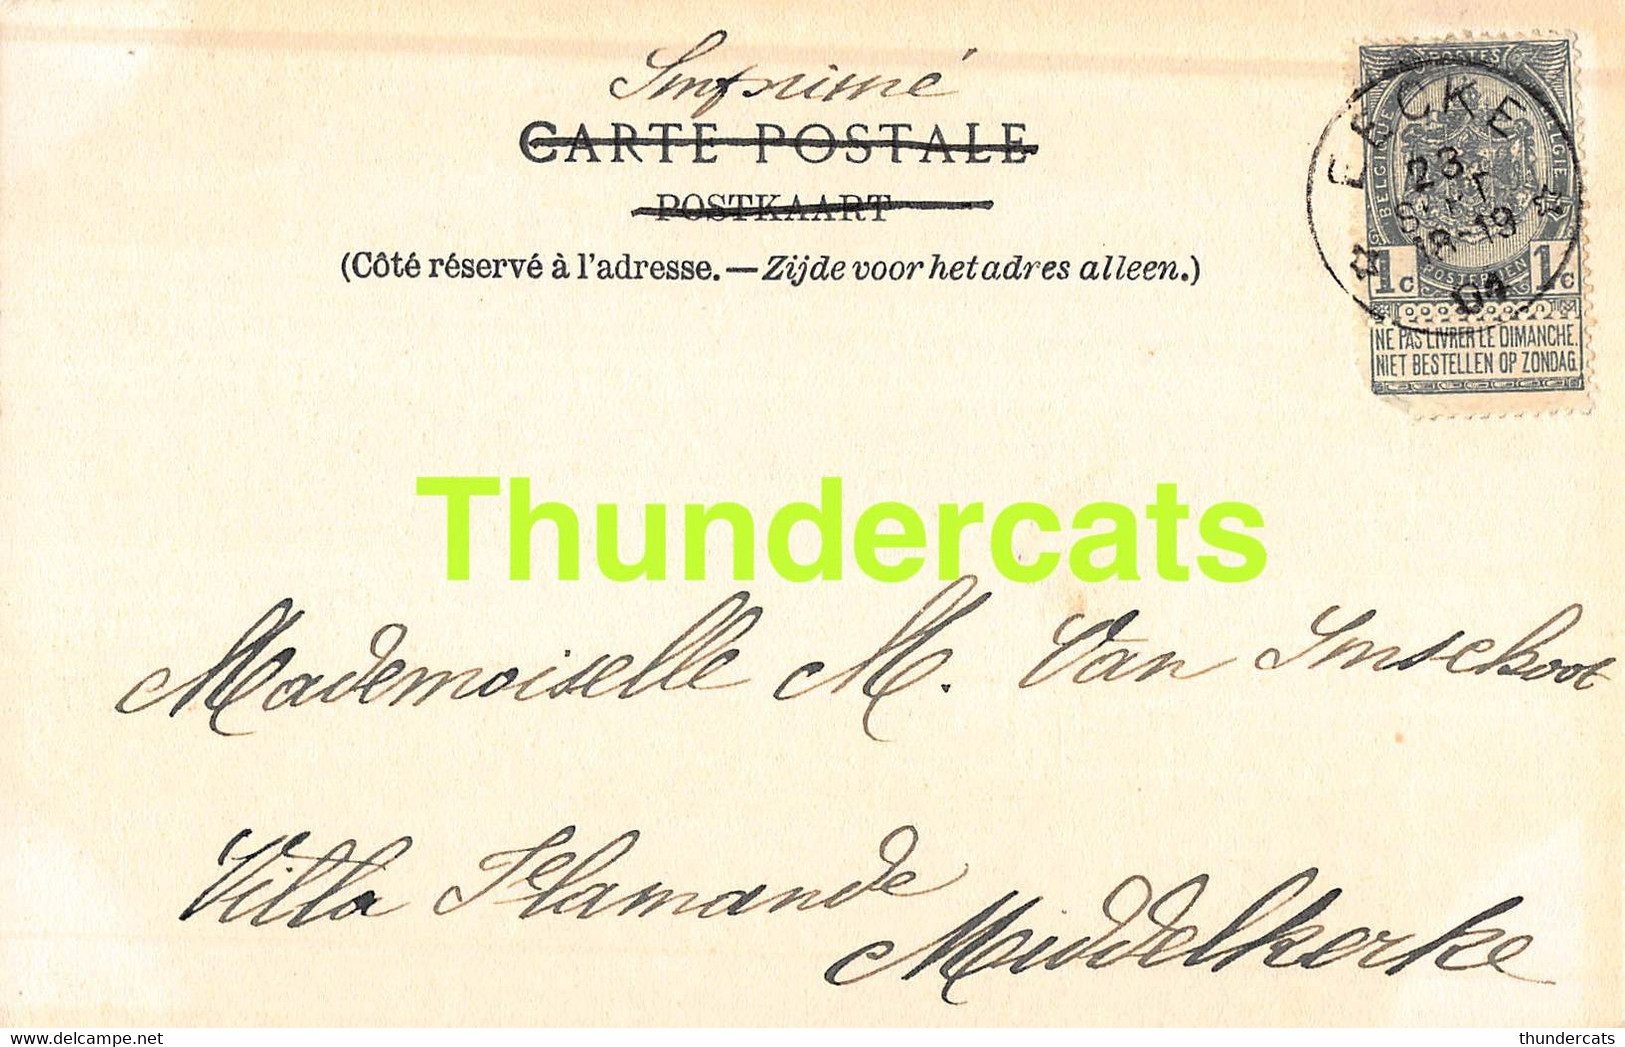 Imprimé
CARTE POSTALE
POSTKAART
(Côté réservé à l'adresse. — Zijde voor het adres alleen.)
EECKE
23
SEPT
18-19
04
POSTES
BELGIQUE BELGIE
POSTERIJEN
1c 1c
NE PAS LIVRER LE DIMANCHE.
NIET BESTELLEN OP ZONDAG
Thundercats
Mademoiselle M. Van Imschoot
Villa Flamande
Middelkerke
thundercats